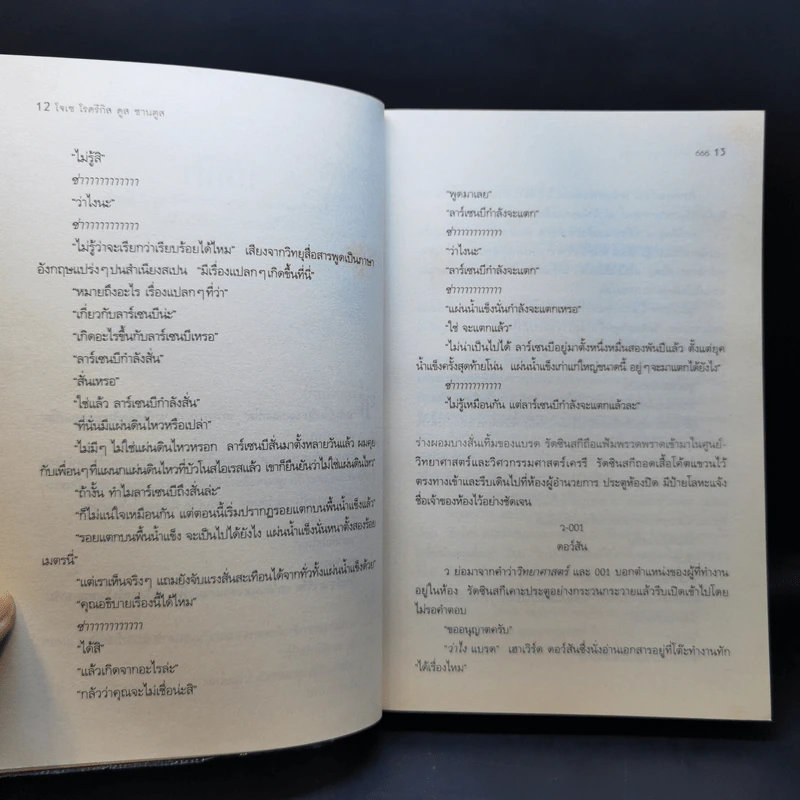 12 โจเซ โรดริกิส ดูส ซานตูส
"ไม่รู้สิ"
ซ่าาาาาาาาาาาาา
"ว่าไงนะ"
ซ่าาาาาาาาาาาาา
"ไม่รู้ว่าจะเรียกว่าเรียบร้อยได้ไหม" เสียงจากวิทยุสื่อสารพูดเป็นภาษา
อังกฤษแปร่งๆ ปนสำเนียงสเปน "มีเรื่องแปลกๆ เกิดขึ้นที่นี่"
"หมายถึงอะไร เรื่องแปลกๆ ที่ว่า"
"เกี่ยวกับลาร์เซนบีน่ะ"
"เกิดอะไรขึ้นกับลาร์เซนบีเหรอ"
"ลาร์เซนบีกำลังสั่น"
"สั่นเหรอ"
"ใช่แล้ว ลาร์เซนบีกำลังสั่น"
"ที่นั่นมีแผ่นดินไหวหรือเปล่า"
"ไม่มีๆ ไม่ใช่แผ่นดินไหวหรอก ลาร์เซนบีสั่นมาตั้งหลายวันแล้ว ผมคุย
กับเพื่อนๆ ที่แผนกแผ่นดินไหวที่บัวโนสไอเรสแล้ว เขาก็ยืนยันว่าไม่ใช่แผ่นดินไหว"
"ถ้างั้น ทำไมลาร์เซนบีถึงสั่นล่ะ"
"ก็ไม่แน่ใจเหมือนกัน แต่ตอนนี้เริ่มปรากฏรอยแตกบนพื้นน้ำแข็งแล้ว"
"รอยแตกบนพื้นน้ำแข็ง จะเป็นไปได้ยังไง แผ่นน้ำแข็งนั่นหนาตั้งสองร้อย
เมตรนี่"
"แต่เราเห็นจริงๆ แถมยังจับแรงสั่นสะเทือนได้จากทั่วทั้งแผ่นน้ำแข็งด้วย"
"คุณอธิบายเรื่องนี้ได้ไหม"
ซ่าาาาาาาาาาาาา
"ได้สิ"
"แล้วเกิดจากอะไรล่ะ"
"กลัวว่าคุณจะไม่เชื่อน่ะสิ"
666 13
"พูดมาเลย"
"ลาร์เซนบีกำลังจะแตก"
ซ่าาาาาาาาาาาาา
"ว่าไงนะ"
"ลาร์เซนบีกำลังจะแตก"
ซ่าาาาาาาาาาาาา
"แผ่นน้ำแข็งนั่นกำลังจะแตกเหรอ"
"ใช่ จะแตกแล้ว"
"ไม่น่าเป็นไปได้ ลาร์เซนบีอยู่มาตั้งหนึ่งหมื่นสองพันปีแล้ว ตั้งแต่ยุค
น้ำแข็งครั้งสุดท้ายโน่น แผ่นน้ำแข็งเก่าแก่ใหญ่ขนาดนี้ อยู่ๆ จะมาแตกได้ยังไง"
ซ่าาาาาาาาาาาาา
"ไม่รู้เหมือนกัน แต่ลาร์เซนบีกำลังจะแตกแล้วละ"
ร่างผอมบางสั่นเทิ้มของแบรด รัดซินสกีถือแฟ้มพรวดพราดเข้ามาในศูนย์-
วิทยาศาสตร์และวิศวกรรมศาสตร์เครรี รัดซินสกีถอดเสื้อโค้ตแขวนไว้
ตรงทางเข้าและรีบเดินไปที่ห้องผู้อำนวยการ ประตูห้องปิด มีป้ายโลหะแจ้ง
ชื่อเจ้าของห้องไว้อย่างชัดเจน
ว-001
ดอว์สัน
ว ย่อมาจากคำว่าวิทยาศาสตร์ และ 001 บอกตำแหน่งของผู้ที่ทำงาน
อยู่ในห้อง รัดซินสกีเคาะประตูอย่างกระวนกระวายแล้วรีบเปิดเข้าไปโดย
ไม่รอคำตอบ
"ขออนุญาตครับ"
"ว่าไง แบรด" เฮาเวิร์ด ดอว์สันซึ่งนั่งอ่านเอกสารอยู่ที่โต๊ะทำงานทัก
"ได้เรื่องไหม"